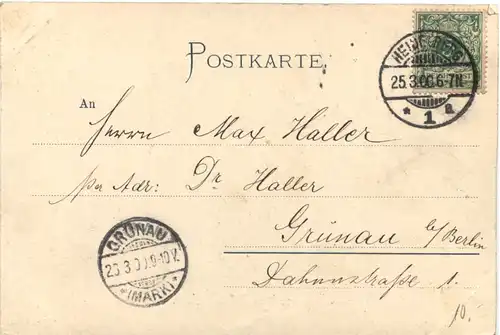 POSTKARTE.
HEIDELBERG
25.3.00.6-7N.
* 1 a
An
Herrn Max Haller
per Adr: Dr Haller
Grünau b/Berlin
Dahmestraße 1.
GRÜNAU
9-10V.
*(MARK)*
10.